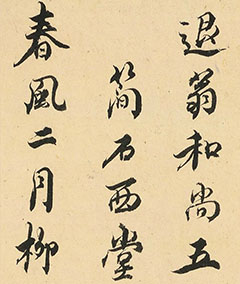 退翁和尚五
简石西堂
春風二月柳